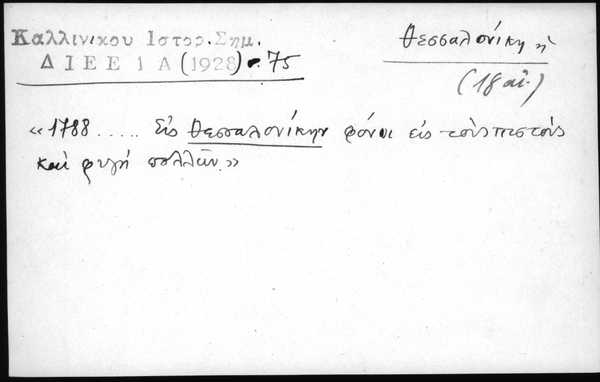 Καλλινίκου Ιστορ. Σημ.
Θεσσαλονίκη ἡ
ΔΙΕΕ 1 Α (1928) 75
(18 αἰ.)
«1788 ..... Εἰς Θεσσαλονίκην φόνοι εἰς τοὺς πιστοὺς
καὶ φυγὴ πολλῶν.»